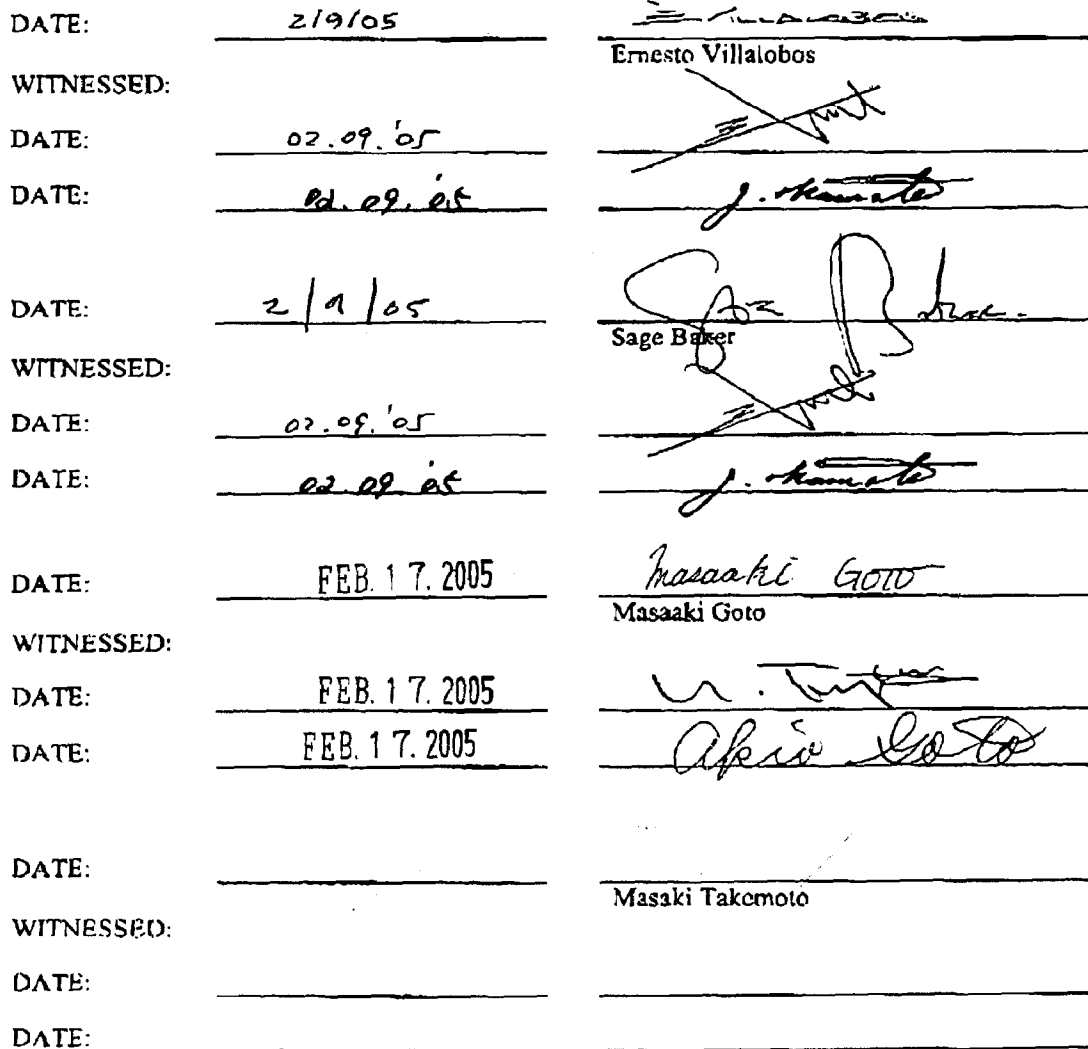 DATE: 2/9/05 E. VILLALOBOS
Ernesto Villalobos
WITNESSED:
DATE: 02.09.'05
DATE: 02.09.'05 J. Okamoto
DATE: 2/9/05 Sage Baker
Sage Baker
WITNESSED:
DATE: 02.09.'05
DATE: 02.09.'05 J. Okamoto
DATE: FEB. 17. 2005 Masaaki GOTO
Masaaki Goto
WITNESSED:
DATE: FEB. 17. 2005
DATE: FEB. 17. 2005 Akio Goto
DATE:
Masaki Takemoto
WITNESSED:
DATE:
DATE: